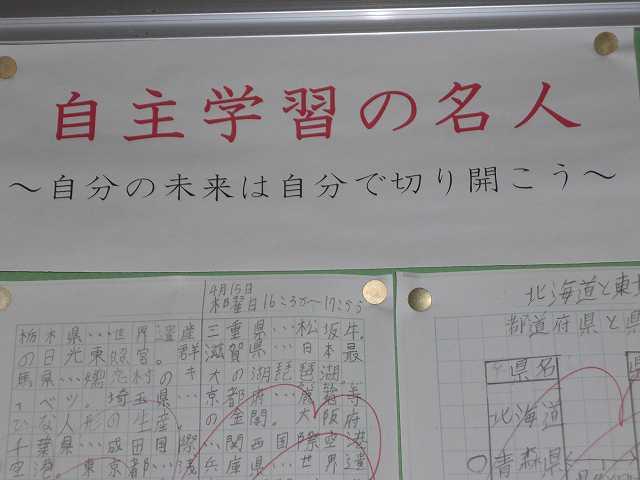 自主学習の名人
～自分の未来は自分で切り開こう～
4月15日
木曜日16ころから～17ころから
栃木県…世界遺産
の日光東照宮。群
馬県…嬬恋村のキ
ャベツ。埼玉県…
ひな人形の生産。
千葉県…成田国際
空港。東京都…浅
三重県…松坂牛。
滋賀県…日本最
大の湖琵琶湖。
京都府…鹿苑寺
の金閣。大阪府
…関西国際空港
兵庫県…世界遺
北海道と東北
都道府県と県
県名
北海道
青森県